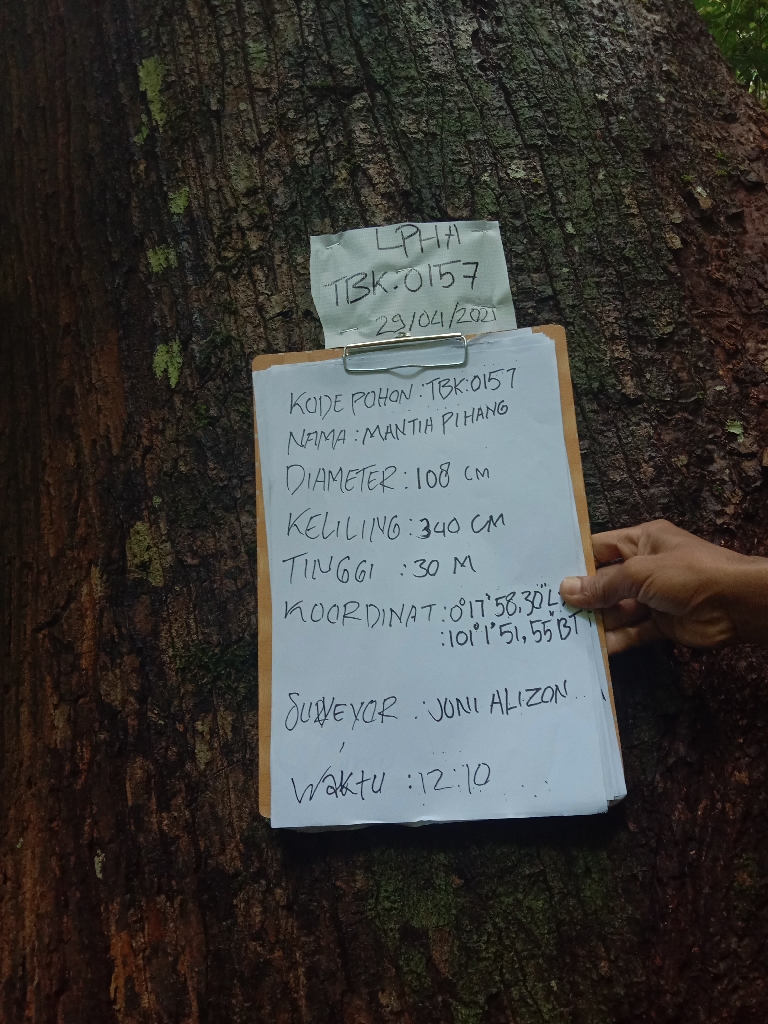 LPHA
TBK.0157
29/04/2021
KODE POHON : TBK:0157
NAMA : MANTIA PIHANG
DIAMETER : 108 CM
KELILING : 340 CM
TINGGI : 30 M
KOORDINAT : 0°17'58.30"L
: 101°1'51,55 BT
SURVEYOR : JONI ALIZON
WAKTU : 12:10